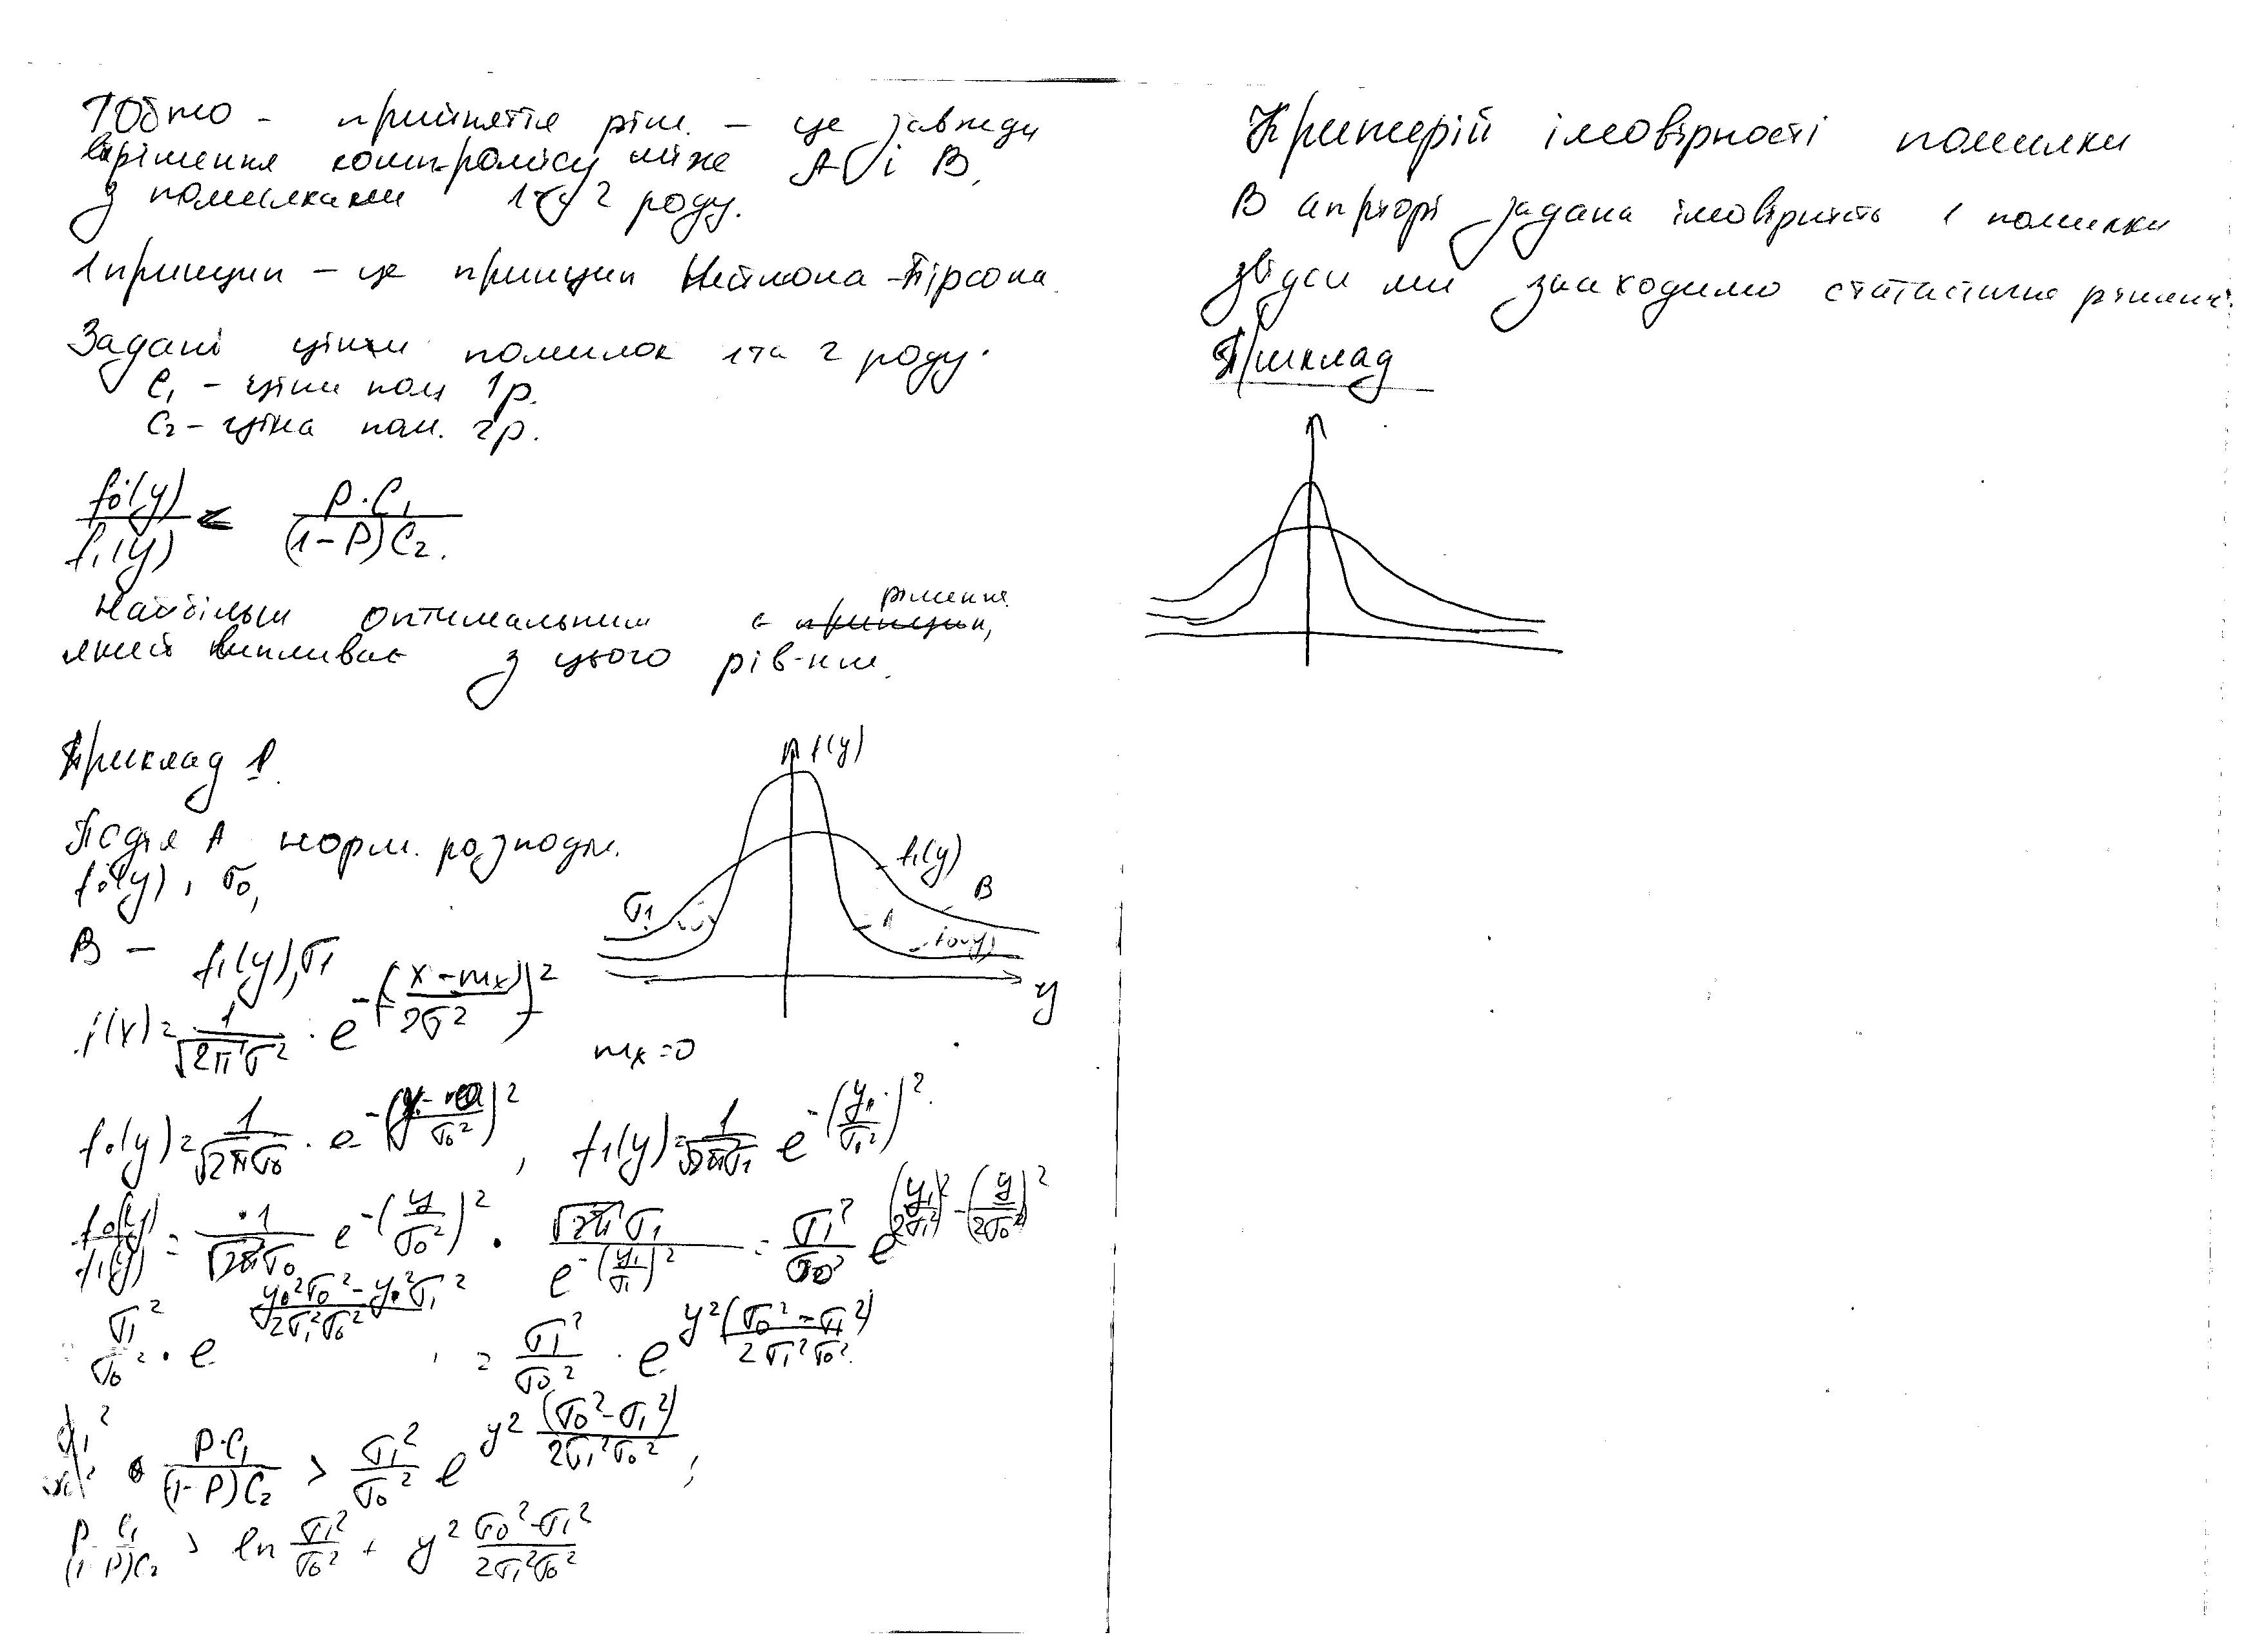 Тобто - прийняття ріш. - це завжди
вирішення компромісу між А і В,
з помилками 1 та 2 роду.
1 принцип - це принцип Неймона-Пірсона.
Задані ціни помилок 1 та 2 роду.
C₁ - ціни пом 1р.
C₂ - ціна пом. 2р.
f₀(y)/f₁(y) < P·C₁/((1-P)C₂).
Найбільш оптимальним є рішення,
який випливає з цього рів-ння.
Приклад 1.
Подія А норм. розподіл.
f₀(y), σ₀,
В - f₁(y), σ₁
f(x) = 1/√(2πσ²) · e^(-((x-mₓ)/2σ²)²)
mₓ=0
f₀(y) = 1/(√2π σ₀) · e^(-(y/σ₀²)²), f₁(y) = 1/(√2π σ₁) e^(-(y/σ₁²)²)
f₀(y)/f₁(y) = 1/(√2π σ₀) e^(-(y/σ₀²)²) · √2π σ₁/e^(-(y₁/σ₁)²) = σ₁²/σ₀² e^((y₁/2σ₁²)²-(y/2σ₀²)²)
σ₁²/σ₀² · e^((y₀²σ₀²-y₀²σ₁²)/2σ₁²σ₀²) = σ₁²/σ₀² · e^(y²(σ₀²-σ₁²)/2σ₁²σ₀²)
P·C₁/((1-P)C₂) > σ₁²/σ₀² e^(y²(σ₀²-σ₁²)/2σ₁²σ₀²);
P C₁/((1-P)C₂) > ln σ₁²/σ₀² + y² (σ₀²-σ₁²)/2σ₁²σ₀²
f(y)
f₁(y)
B
σ₁
A
f₀(y)
y
Критерій імовірності помилки
В апріорі задана імовірність 1 помилки
звідси ми знаходимо статистичне рішення.
Приклад